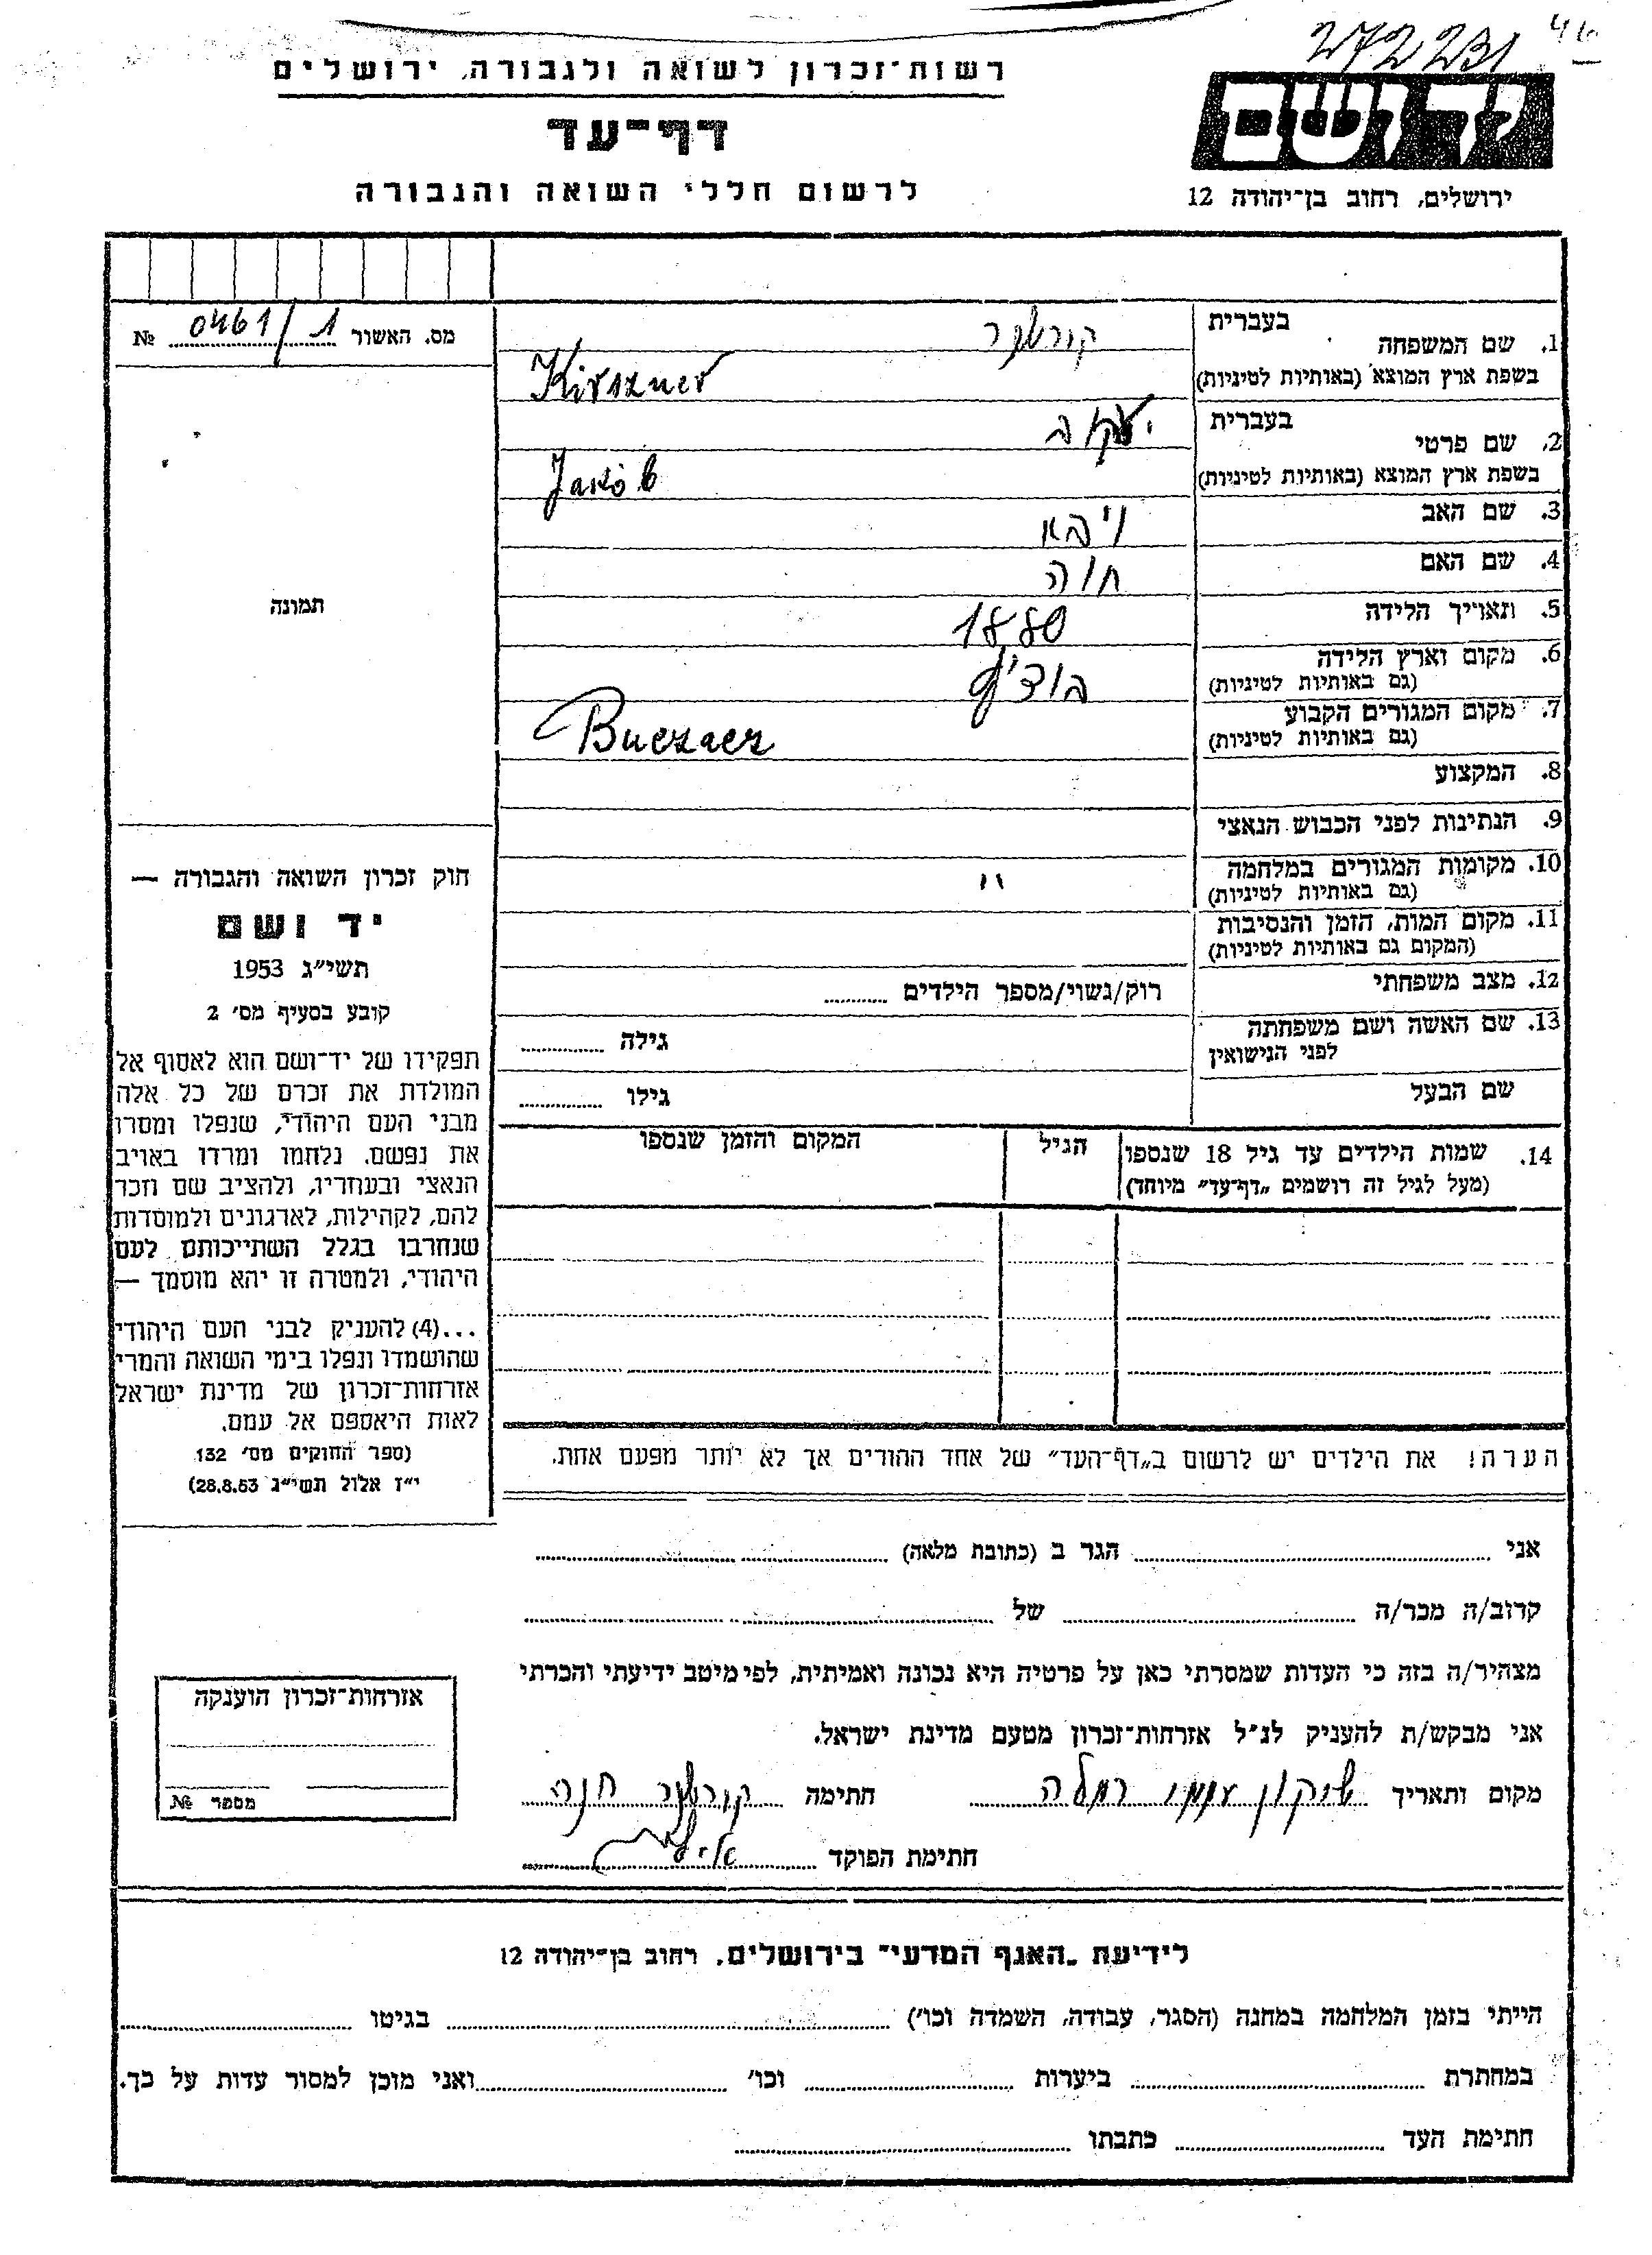 272231
46
יד ושם
ירושלים, רחוב בן־יהודה 12
רשות־זכרון לשואה ולגבורה, ירושלים
דף־עד
לרשום חללי השואה והגבורה
מס. האשור 0461/1 №
תמונה
1. שם המשפחה
בעברית קורשנר
בשפת ארץ המוצא (באותיות לטיניות) Kirszner
2. שם פרטי
בעברית יעקב
בשפת ארץ המוצא (באותיות לטיניות) Jakób
3. שם האב
4. שם האם חוה
5. תאריך הלידה 1880
6. מקום וארץ הלידה
(גם באותיות לטיניות)
7. מקום המגורים הקבוע Buczacz
(גם באותיות לטיניות)
8. המקצוע
9. הנתינות לפני הכבוש הנאצי
10. מקומות המגורים במלחמה "
(גם באותיות לטיניות)
11. מקום המות, הזמן והנסיבות
(המקום גם באותיות לטיניות)
12. מצב משפחתי רוק/נשוי/מספר הילדים
13. שם האשה ושם משפחתה
לפני הנישואין גילה
שם הבעל גילו
14. שמות הילדים עד גיל 18 שנספו הגיל המקום והזמן שנספו
(מעל לגיל זה רושמים „דף־עד” מיוחד)
הערה! את הילדים יש לרשום ב„דף־העד” של אחד ההורים אך לא יותר מפעם אחת.
חוק זכרון השואה והגבורה —
יד ושם
תשי״ג 1953
קובע בסעיף מס׳ 2
תפקידו של יד־ושם הוא לאסוף אל
המולדת את זכרם של כל אלה
מבני העם היהודי, שנפלו ומסרו
את נפשם, נלחמו ומרדו באויב
הנאצי ובעוזריו, ולהציב שם וזכר
להם, לקהילות, לארגונים ולמוסדות
שנחרבו בגלל השתייכותם לעם
היהודי, ולמטרה זו יהא מוסמך —
...(4) להעניק לבני העם היהודי
שהושמדו ונפלו בימי השואה והמרי
אזרחות־זכרון של מדינת ישראל
לאות היאספם אל עמם.
(ספר החוקים מס׳ 132
י״ז אלול תשי״ג 28.8.53)
אני הגר ב (כתובת מלאה)
קרוב/ה מכר/ה של
מצהיר/ה בזה כי העדות שמסרתי כאן על פרטיה היא נכונה ואמיתית, לפי מיטב ידיעתי והכרתי
אני מבקש/ת להעניק לנ״ל אזרחות־זכרון מטעם מדינת ישראל.
מקום ותאריך שיכון עממי רמלה חתימה קורשנר חנה
חתימת הפוקד
אזרחות־זכרון הוענקה
מספר №
לידיעת „האגף המדעי” בירושלים, רחוב בן־יהודה 12
הייתי בזמן המלחמה במחנה (הסגר, עבודה, השמדה וכו׳) בגיטו
במחתרת ביערות וכו׳ ואני מוכן למסור עדות על כך.
חתימת העד כתבתו